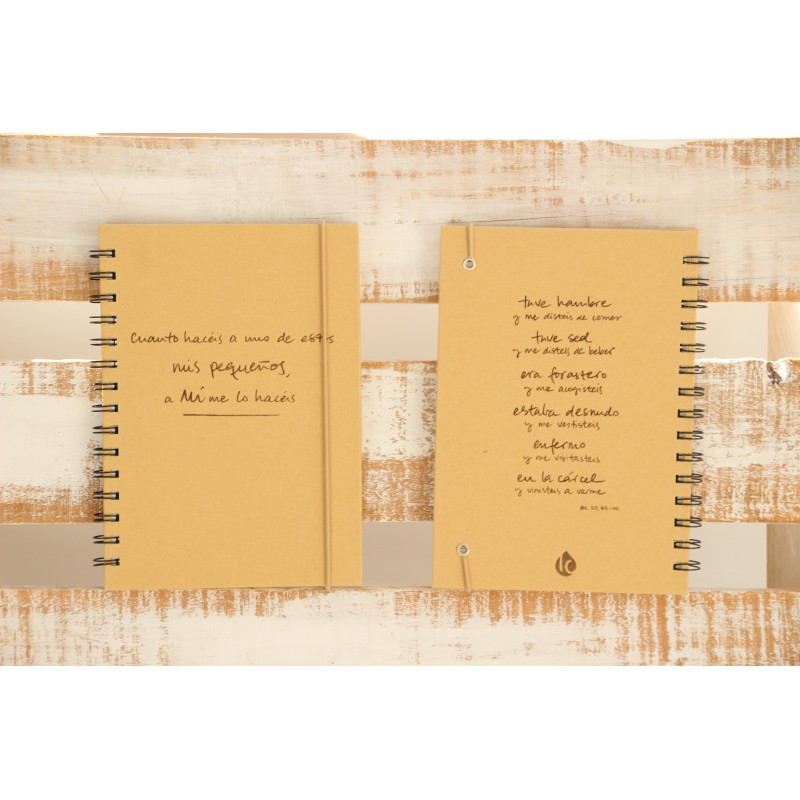 Cuanto hacéis a uno de estos
mis pequeños,
a Mí me lo hacéis
tuve hambre
y me disteis de comer
tuve sed
y me disteis de beber
era forastero
y me acogisteis
estaba desnudo
y me vestisteis
enfermo
y me visitasteis
en la cárcel
y vinisteis a verme
lc